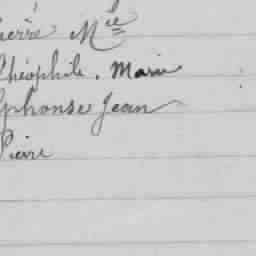 Pierre Mie
Théophile. Marie
Alphonse Jean
Pierre